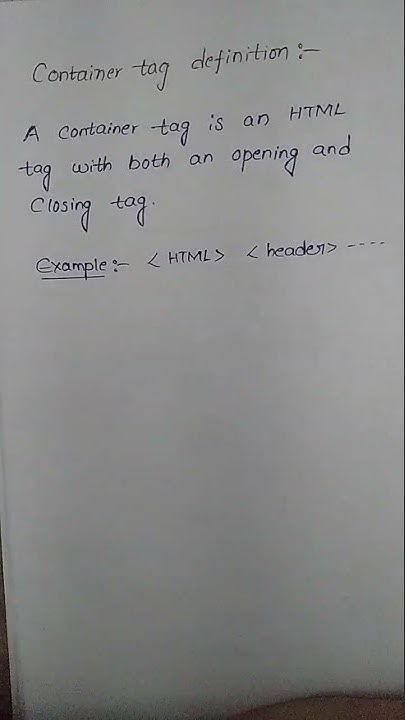 Container tag definition :-
A Container tag is an HTML
tag with both an opening and
Closing tag.
Example :- <HTML> <header> ----